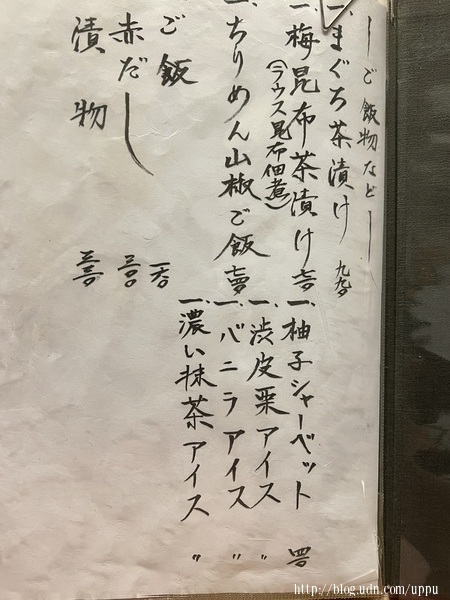 ―ご飯物など―
一、まぐろ茶漬け 九五〇
一、梅昆布茶漬け
(ラウス昆布佃煮)
一、ちりめん山椒ご飯
ご飯
赤だし
漬物
一、柚子シャーベット
一、渋皮栗アイス 〃
一、バニラアイス 〃
一、濃い抹茶アイス 〃
http://blog.udn.com/uppu